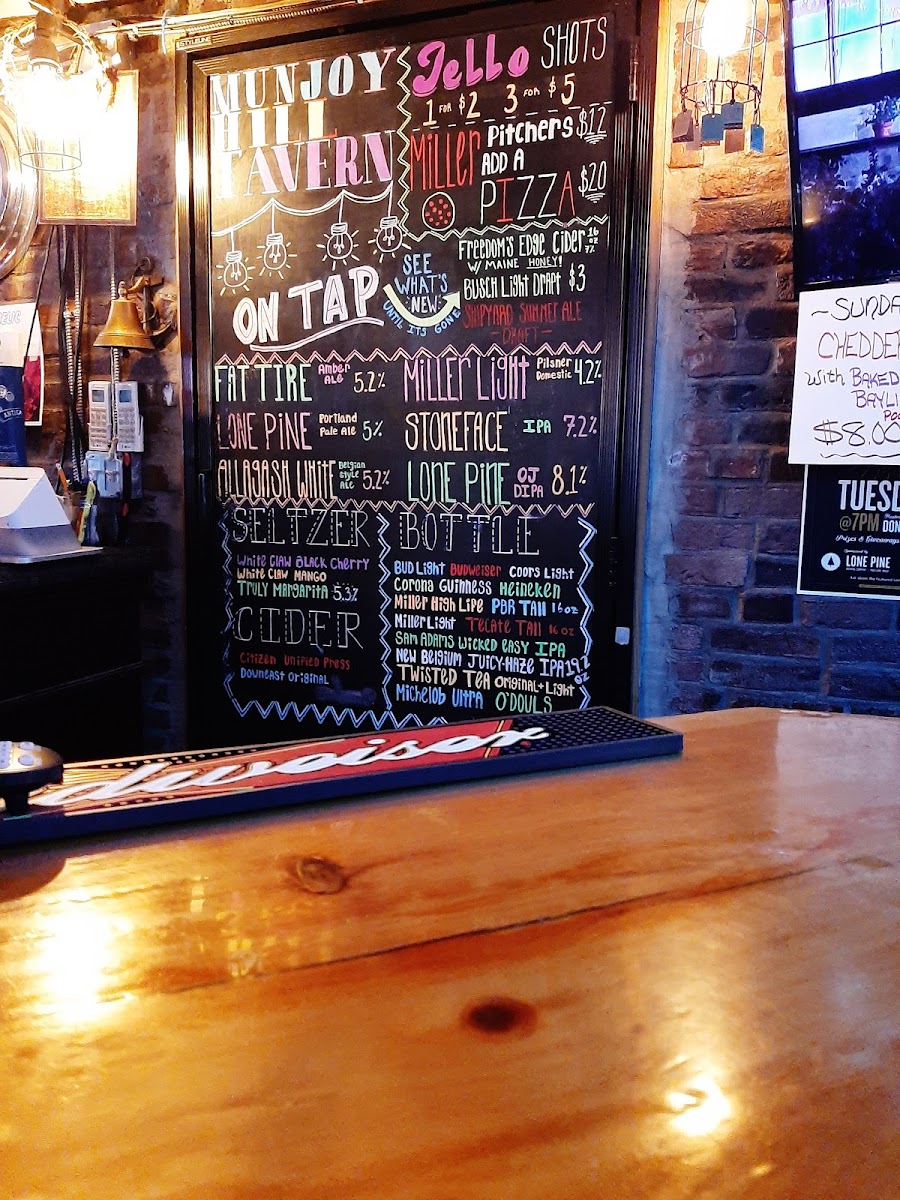 MUNJOY
HILL
TAVERN
Jello SHOTS
1 FOR $2 3 FOR $5
Miller Pitchers $12
ADD A
PIZZA $20
ON TAP
SEE
WHAT'S
NEW
UNTIL ITS GONE
FREEDOM'S EDGE CIDER 16 oz 7%
W/ MAINE HONEY!
BUSCH LIGHT DRAFT $3
SHIPYARD SUMMER ALE
- DRAFT -
FAT TIRE Amber Ale 5.2%
LONE PINE Portland Pale Ale 5%
ALLAGASH WHITE Belgian Style Ale 5.2%
MILLER LIGHT Pilsner Domestic 4.2%
STONEFACE IPA 7.2%
LONE PINE OJ DIPA 8.1%
SELTZER
WHITE CLAW BLACK CHERRY
WHITE CLAW MANGO
TRULY MARGARITA 5.3%
CIDER
CITIZEN UNIFIED PRESS
DOWNEAST ORIGINAL
BOTTLE
BUD LIGHT BUDWEISER COORS LIGHT
CORONA GUINNESS HEINEKEN
MILLER HIGH LIFE PBR TALL 16 oz
MILLER LIGHT TECATE TALL 16 oz
SAM ADAMS WICKED EASY IPA
NEW BELGIUM JUICY-HAZE IPA 19.2 oz
TWISTED TEA ORIGINAL+LIGHT
MICHELOB ULTRA O'DOULS
~SUNDA
CHEDDE
With BAKED
BAYLI
$8.00
TUESD
@7PM
DON
Prizes & Giveaways
Sponsored by
LONE PINE
dweiser